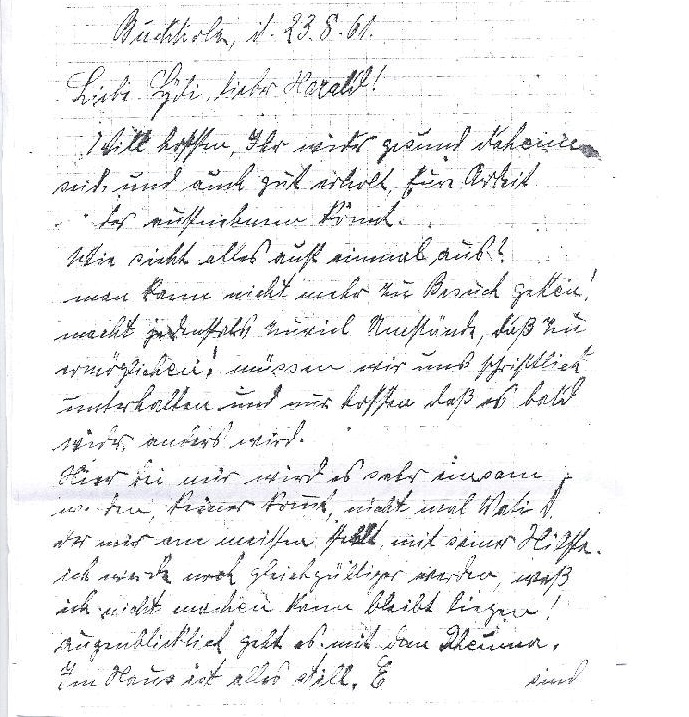 Buchholz, d. 23.8.61.
Liebe Lydi, lieber Harald!
Will hoffen, Ihr wieder gesund daheim
seid, und auch gut erholt, Eure Arbeit
aufnehmen könnt.
Wie sieht alles auf einmal aus?
man kann nicht mehr zu Besuch gehen!
macht jedenfalls zuviel Umstände, daß zu
ermöglichen! müssen wir uns schriftlich
unterhalten und nur hoffen daß es bald
wieder anders wird.
Hier bei mir wird es sehr einsam
keiner kommt, nicht mal
der mir am meisten fehlt, mit seiner Hilfe.
ich werde noch gleichgültiger werden, waß
ich nicht machen kann bleibt liegen!
augenblicklich geht es mit dem Rheuma.
Im Haus ist alles still. E sind